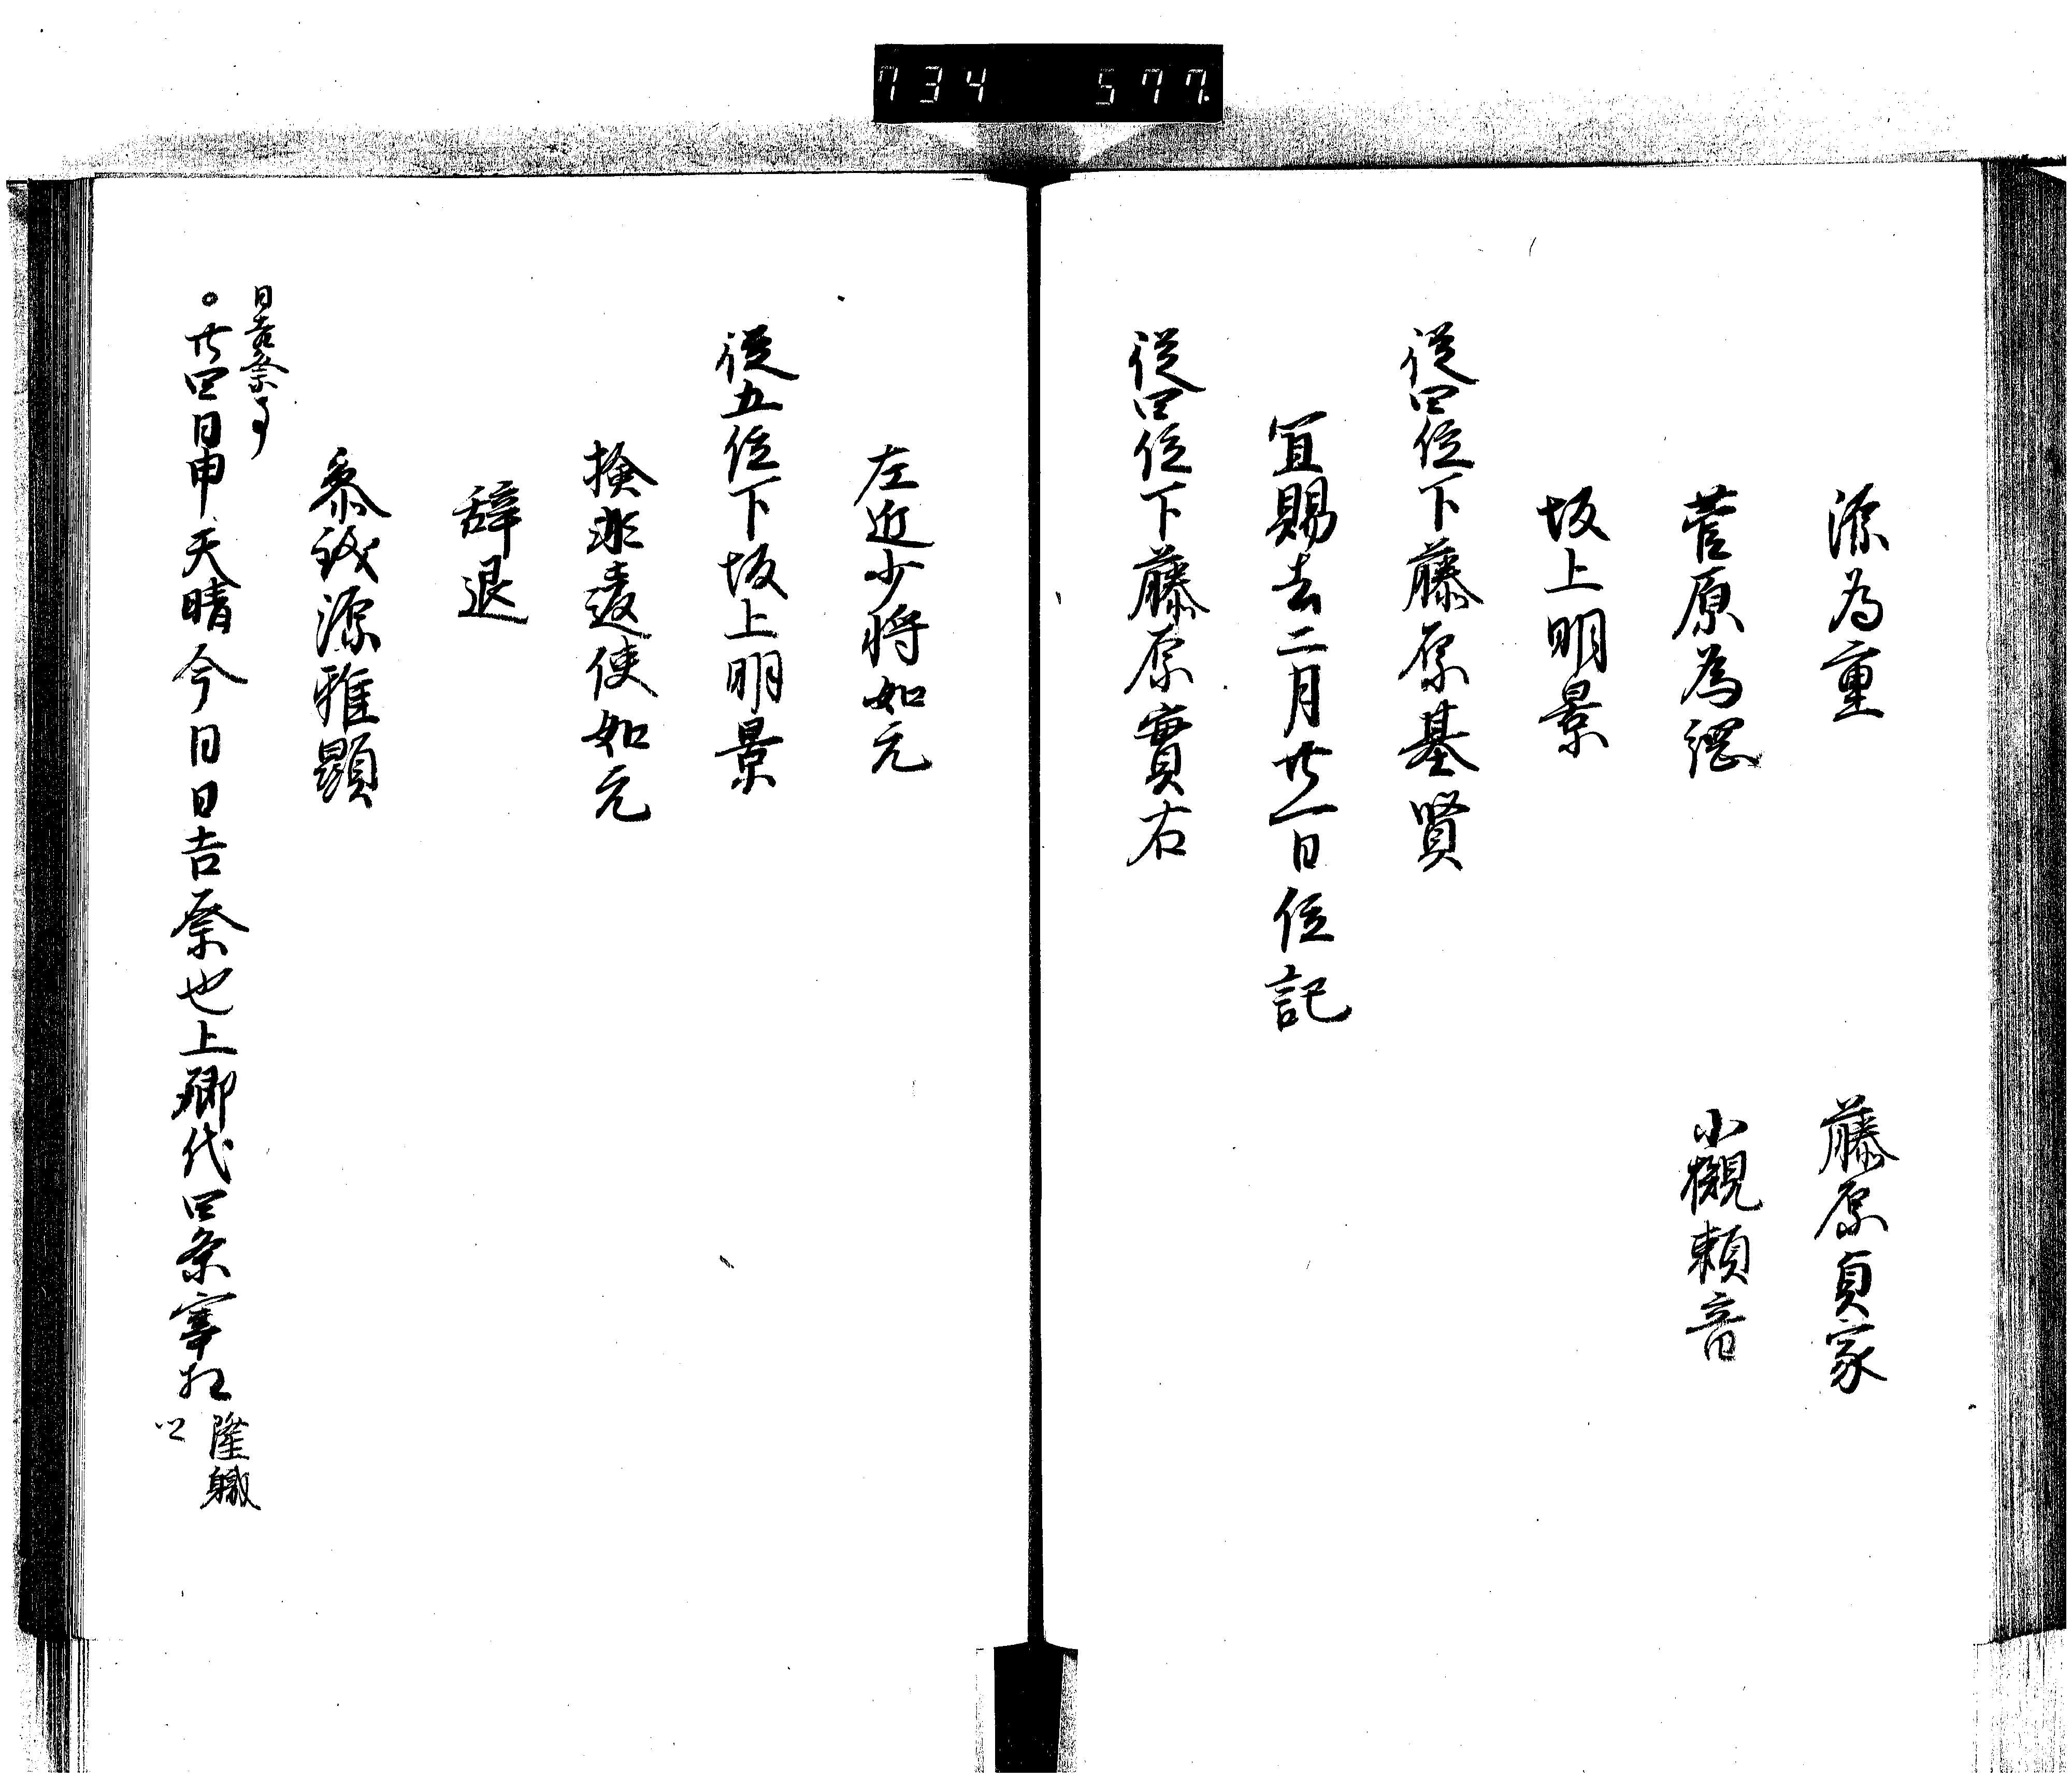 734 577.
源為重　藤原貞家
菅原為縄　小槻頼音
坂上明景
従四位下藤原基賢
宜賜去二月廿一日位記
従四位下藤原實右
左近少将如元
従五位下坂上明景
検非違使如元
辞退
参議源雅顕
日吉祭事
。廿四日甲申天晴今日日吉祭也上卿代四条宰相
隆職